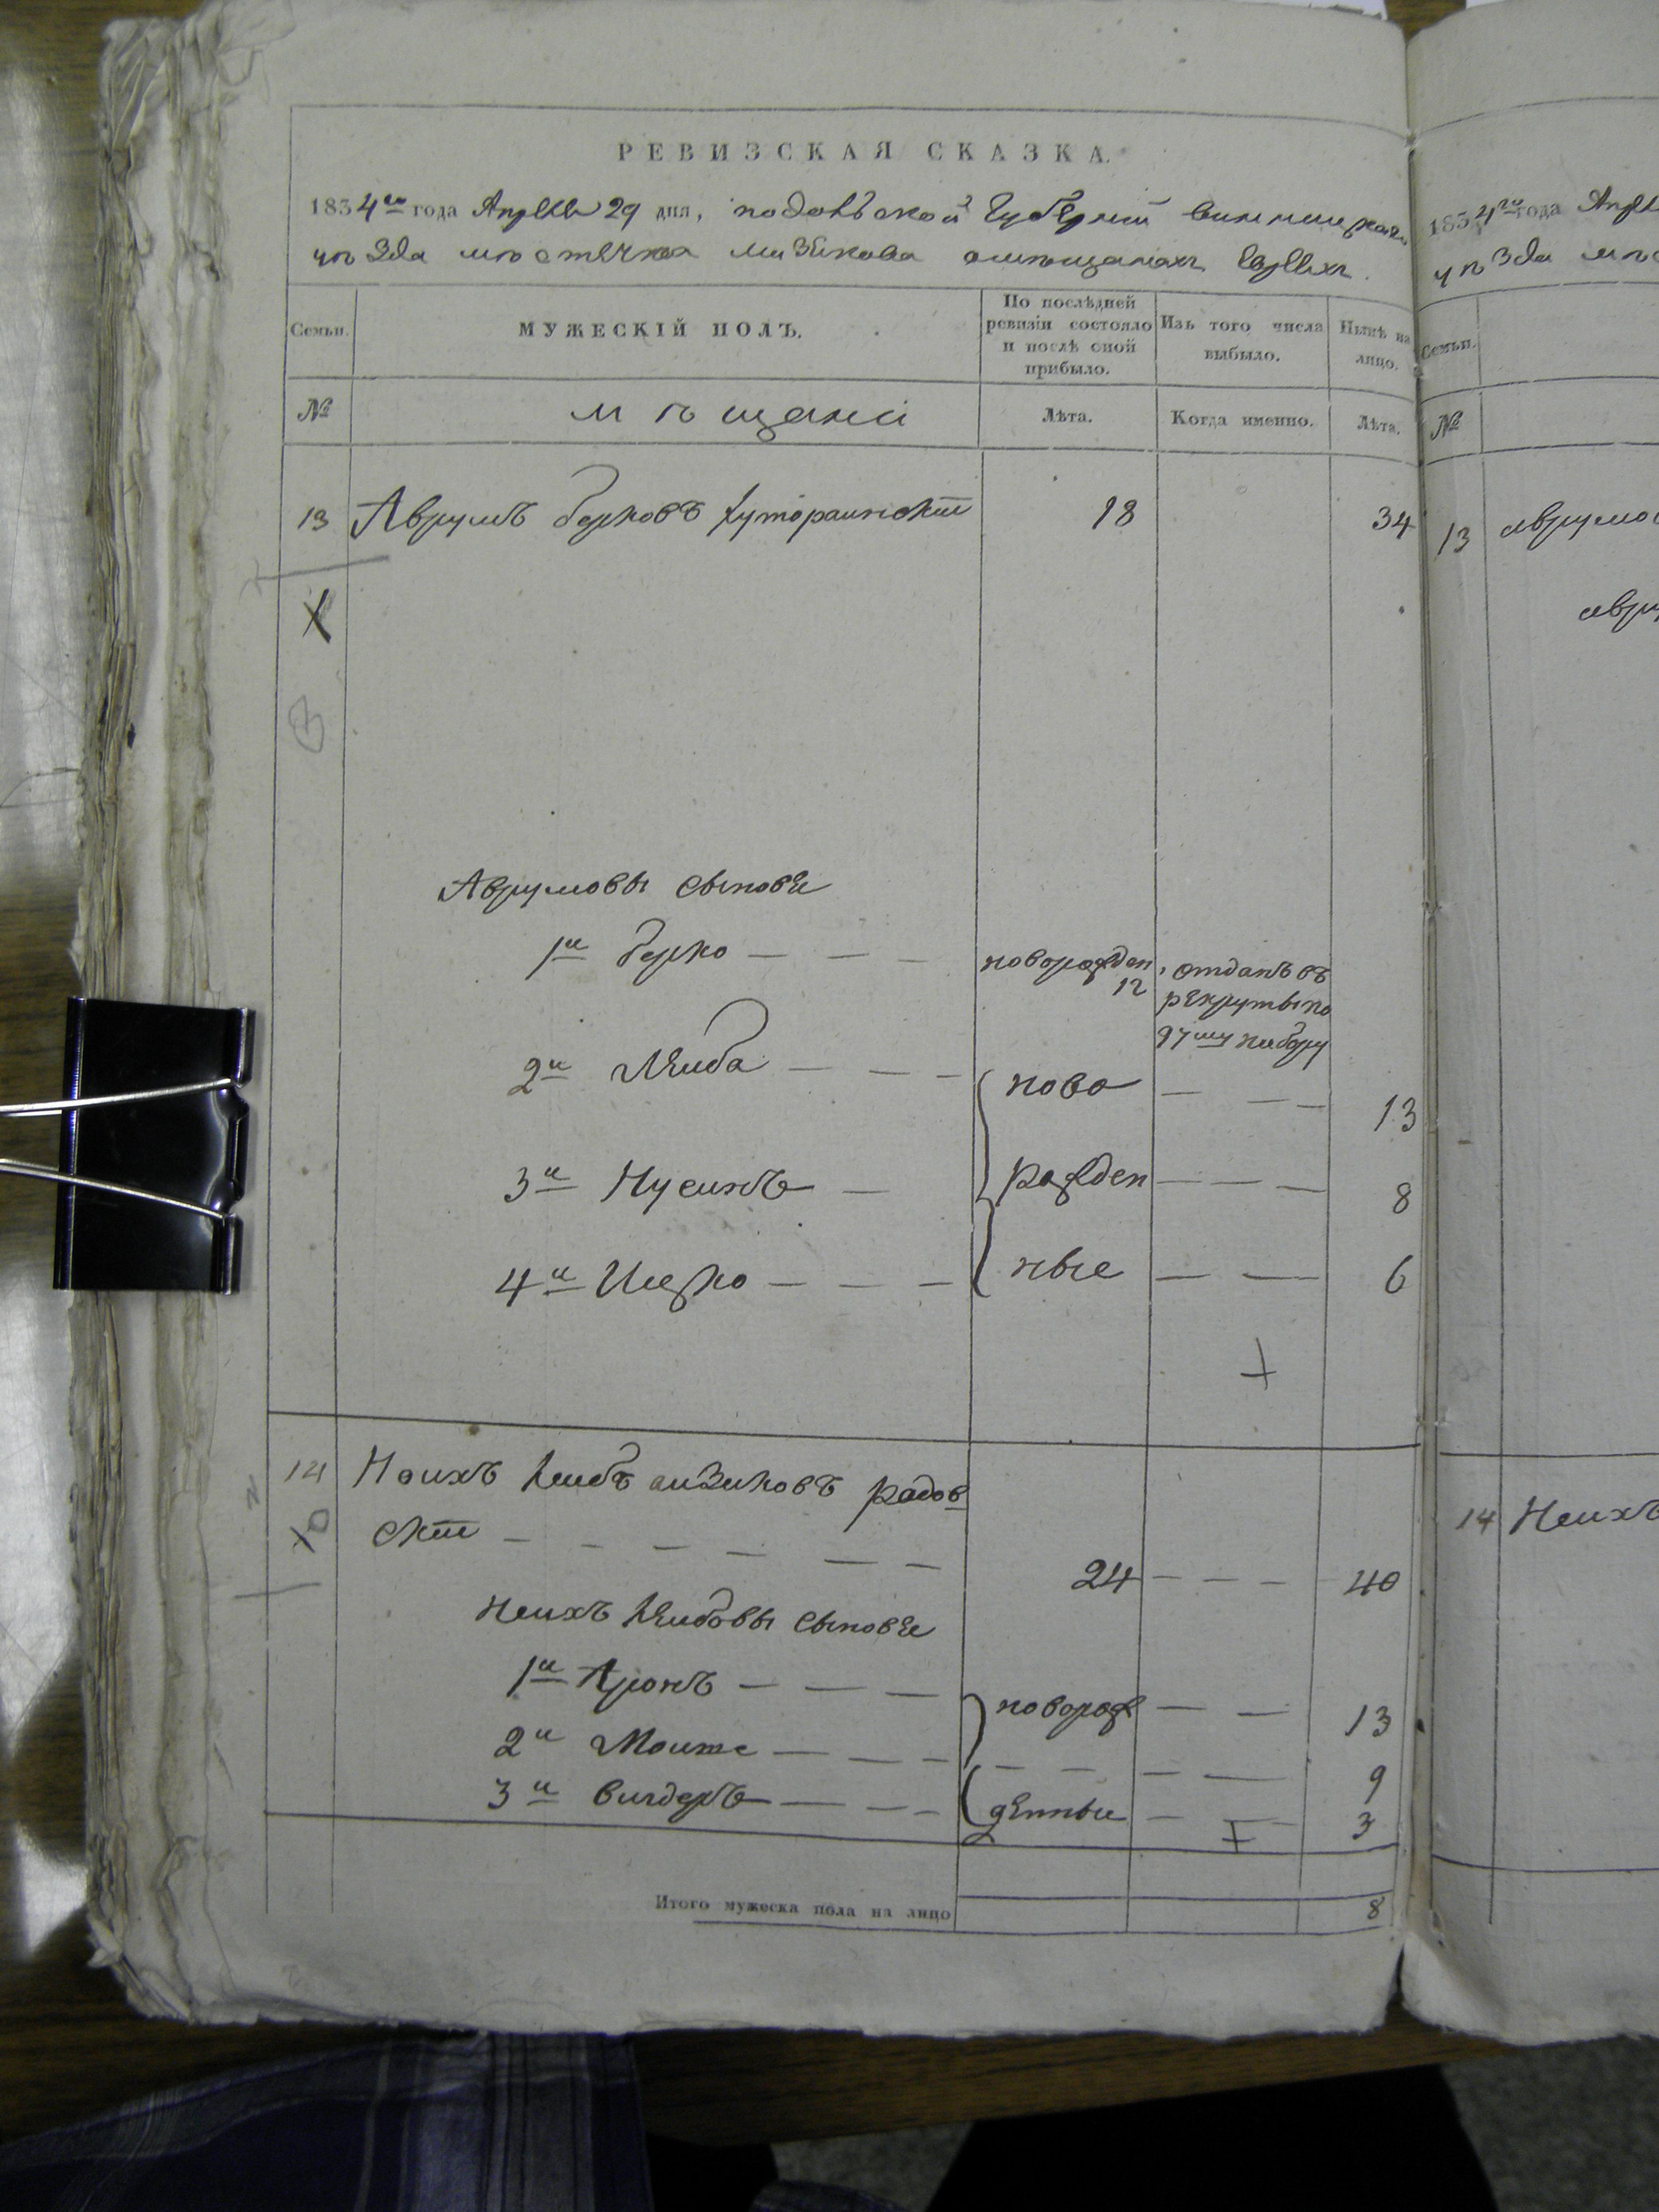 РЕВИЗСКАЯ СКАЗКА.
1834го года Апреля 29 дня, подольской Губерніи винницкаго
уѣзда мѣстечка мизякова омѣщанахъ Евреяхъ.
Семьи.
МУЖЕСКІЙ ПОЛЪ.
По послѣдней ревизіи состояло и послѣ оной прибыло.
Изъ того числа выбыло.
Нынѣ на лицо.
№
мѣщане
Лѣта.
Когда именно.
Лѣта.
13 Аврумъ берковъ хуторянскій 18 34
Аврумовы сыновья
1й берко — — — новорожден 12 отданъ въ
рекрутыпо
97му набору
2й Лейба — — — ново — — — 13
3й Нусинъ — рожден — — — 8
4й Ицко — — — ные — — 6
14 Ноихъ Лейбъ аизиковъ радов
скій — — — — — — 24 — — — 40
Ноихъ Лейбовы сыновья
1й Аронъ — — — новорож — — 13
2й Мошко — — — — — — — 9
3й вигдеръ — — — денные — — 3
Итого мужеска пола на лицо 8
1834го года
уѣзда
Семьи.
№
13
14 Ноихъ